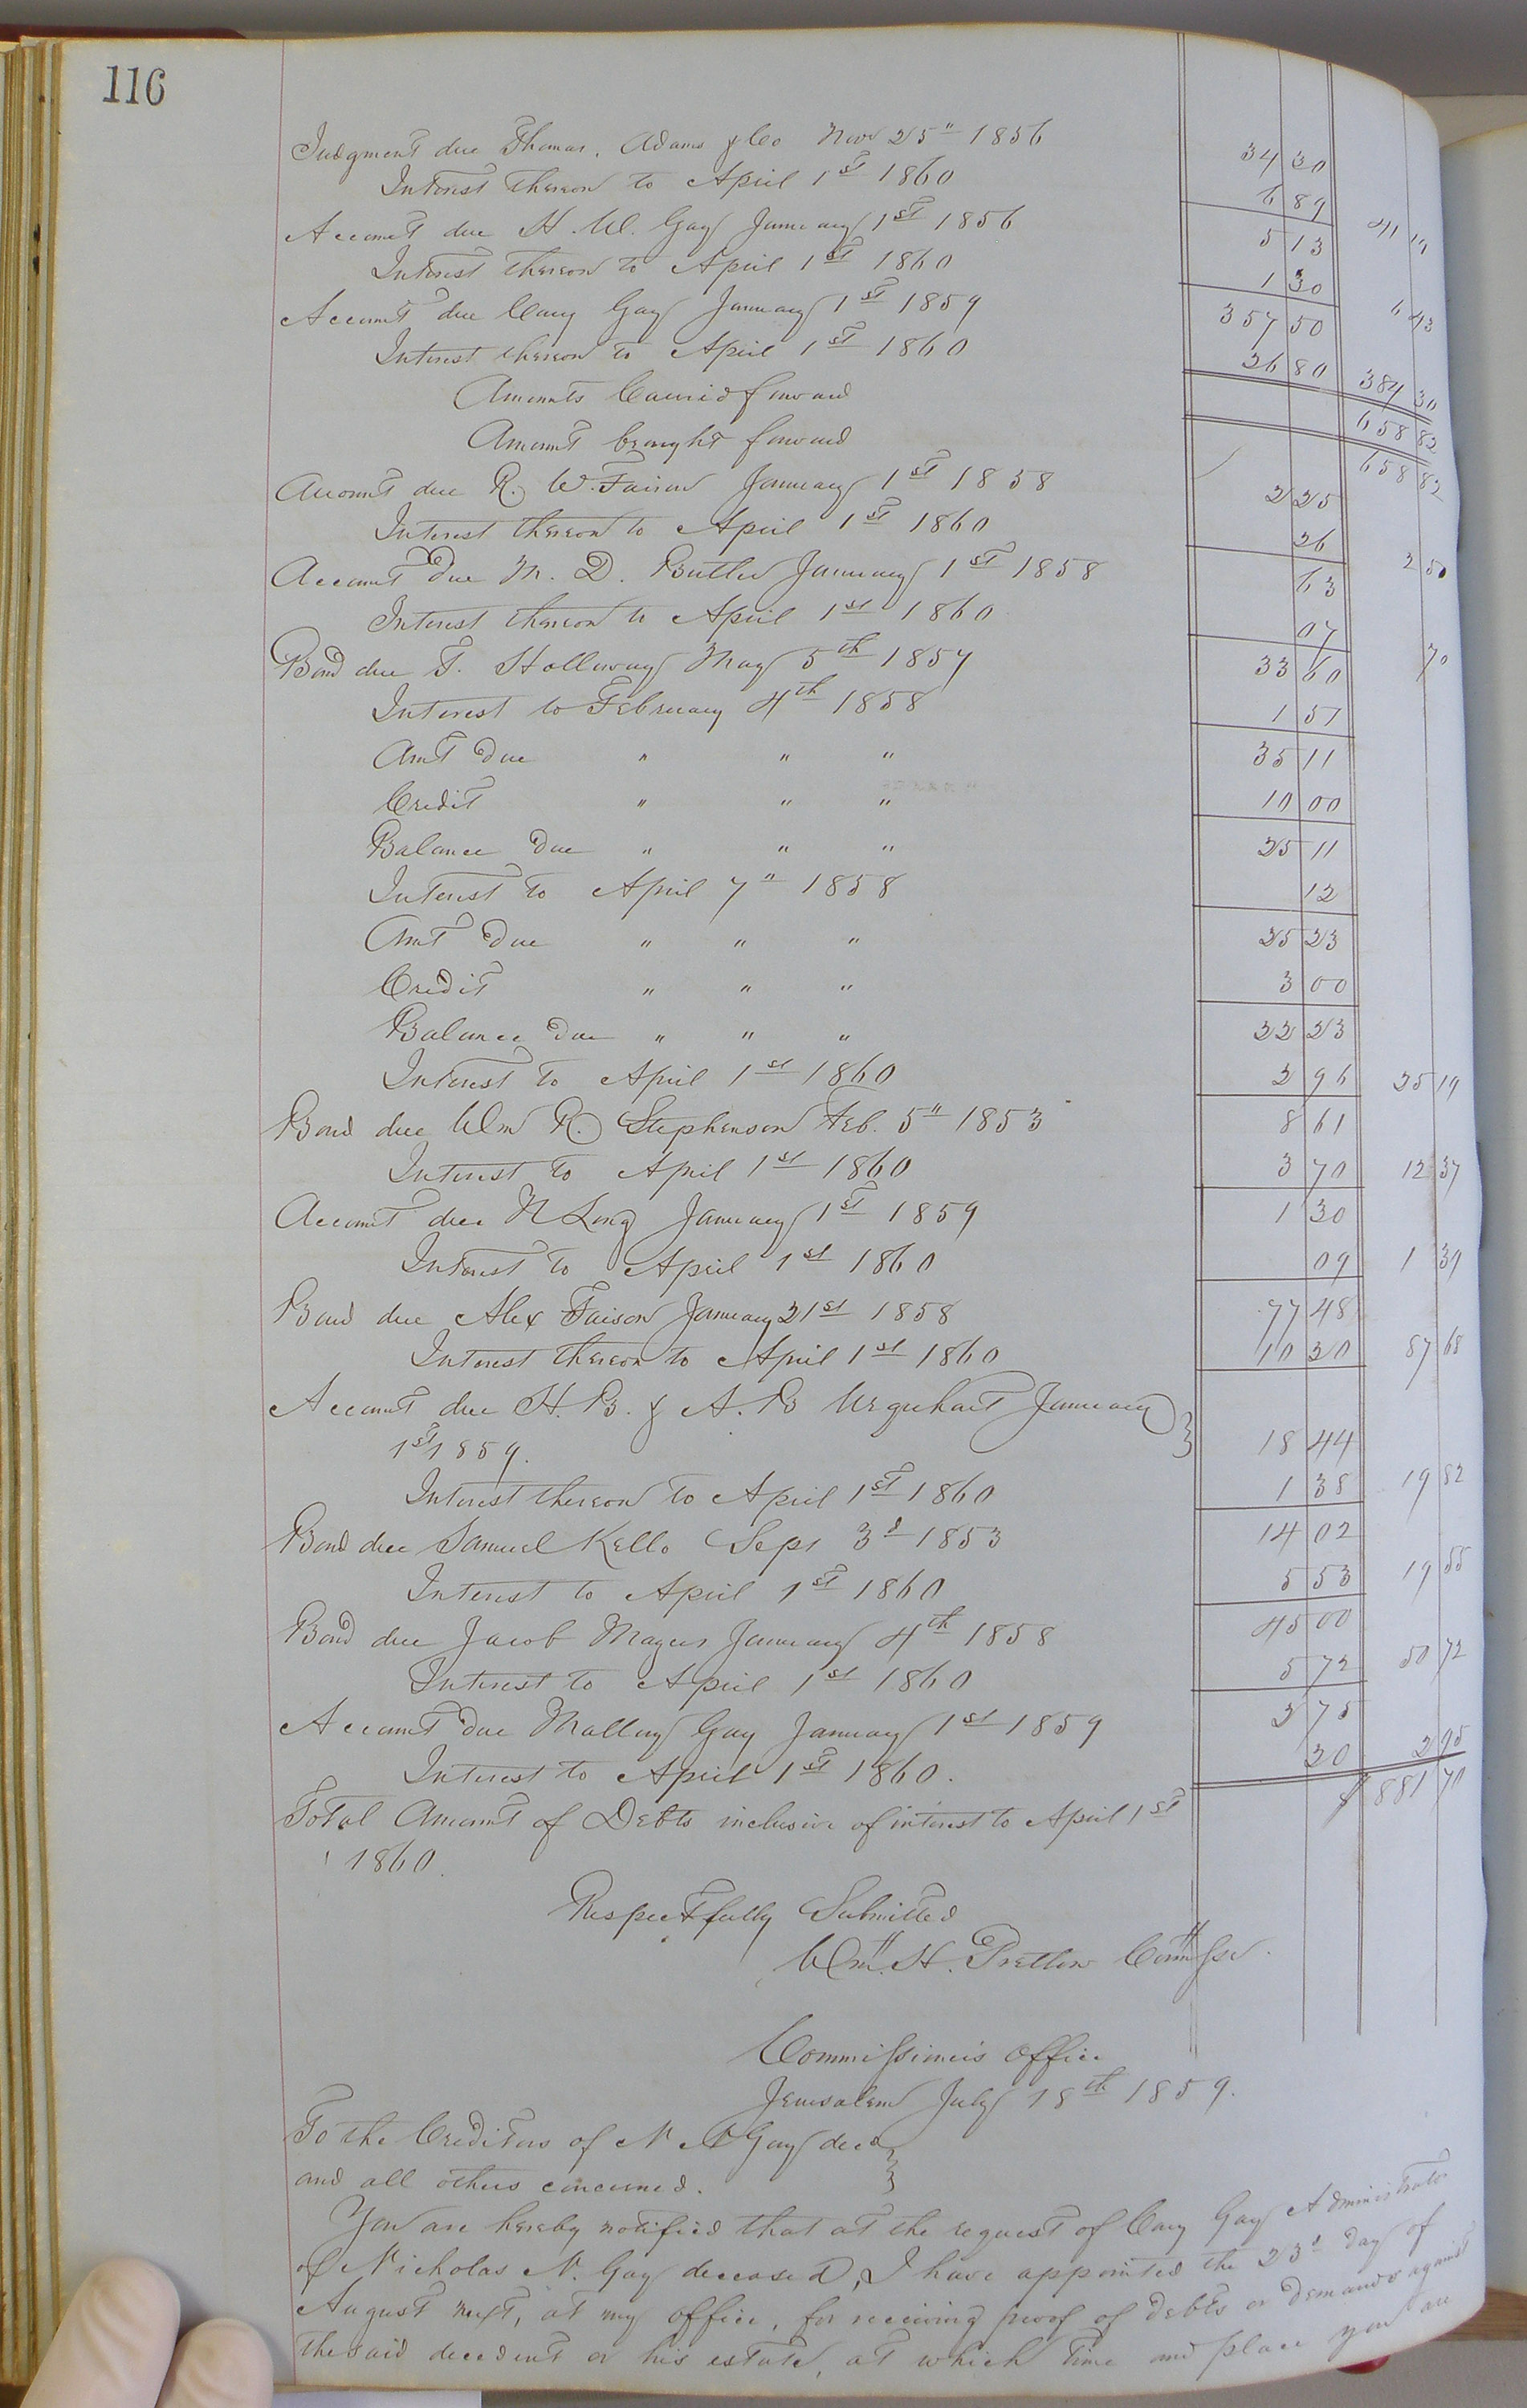 116
Judgment due Thomas, Adams & Co Nov 25" 1856 34 30
Interest thereon to April 1st 1860 6 89 41 19
Account due H. W. Gay January 1st 1856 5 13
Interest thereon to April 1st 1860 1 30 6 43
Account due Cary Gay January 1st 1859 357 50
Interest thereon to April 1st 1860 26 80 384 30
Amounts Carried forward 658 82
Amount brought forward 658 82
Account due R. W. Faison January 1st 1858 2 25
Interest thereon to April 1st 1860 26 2 50
Account due M. D. Butler January 1st 1858 63
Interest thereon to April 1st 1860 07 70
Bond due T. Holloway May 5th 1857 33 60
Interest to February 4th 1858 1 51
Amt Due " " " 35 11
Credit " " " 10 00
Balance Due " " " 25 11
Interest to April 7" 1858 12
Amt Due " " " 25 23
Credit " " " 3 00
Balance Due " " " 22 23
Interest to April 1st 1860 2 96 25 19
Bond due Wm R. Stephenson Feb. 5" 1853 8 61
Interest to April 1st 1860 3 70 12 37
Account due N Long January 1st 1859 1 30
Interest to April 1st 1860 09 1 39
Bond due Alex Faison January 21st 1858 77 48
Interest thereon to April 1st 1860 10 20 87 68
Account due H. B. & A. B Urquhart January
1st 1859. 18 44
Interest thereon to April 1st 1860 1 38 19 82
Bond due Samuel Kello Sept 3d 1853 14 02
Interest to April 1st 1860 5 53 19 55
Bond due Jacob Magees January 4th 1858 45 00
Interest to April 1st 1860 5 72 50 72
Account Due Mallory Gay January 1st 1859 2 75
Interest to April 1st 1860. 20 2 95
Total Amount of Debts inclusive of interest to April 1st $ 881 70
1860.
Respectfully Submitted
Wm. H. Pretlow Commssr.
Commissioners Office
Jerusalem July 18th 1859.
To the Creditors of N N Gay decd
and all others concerned.
You are hereby notified that at the request of Cary Gay Administrator
of Nicholas N. Gay deceased, I have appointed the 23d day of
August next, at my office, for receiving proof of debts or demands against
the said decedent or his estate, at which time and place you are